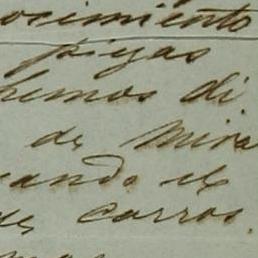 ocimiento
piezas
hemos di
de Mira
ando el
de carros.